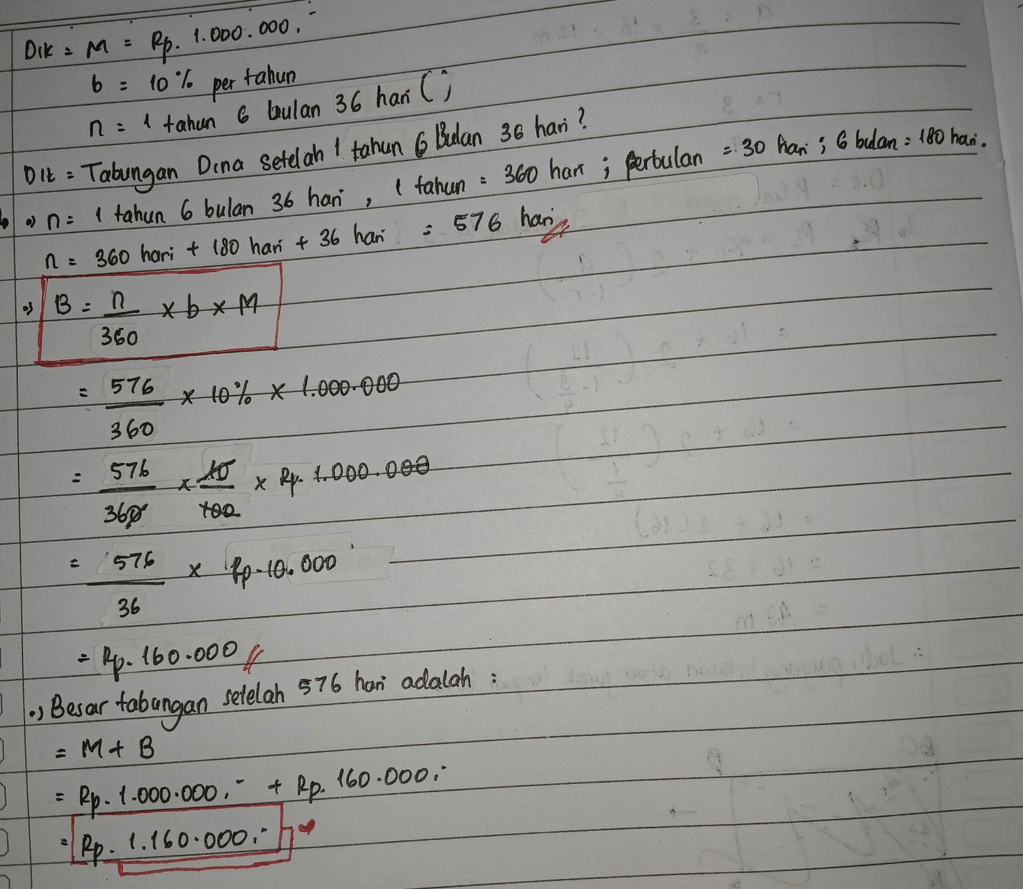 Dik = M = Rp. 1.000.000,-
b = 10% per tahun
n = 1 tahun 6 bulan 36 hari (;
Dit = Tabungan Dina setelah 1 tahun 6 Bulan 36 hari?
=> n = 1 tahun 6 bulan 36 hari , 1 tahun = 360 hari ; perbulan = 30 hari ; 6 bulan = 180 hari.
n = 360 hari + 180 hari + 36 hari = 576 hari
=> B = n/360 x b x M
= 576/360 x 10% x 1.000.000
= 576/360 x 10/100 x Rp. 1.000.000
= 576/36 x Rp. 10.000
= Rp. 160.000
., Besar tabungan setelah 576 hari adalah :
= M + B
= Rp. 1.000.000,- + Rp. 160.000,-
= Rp. 1.160.000,-